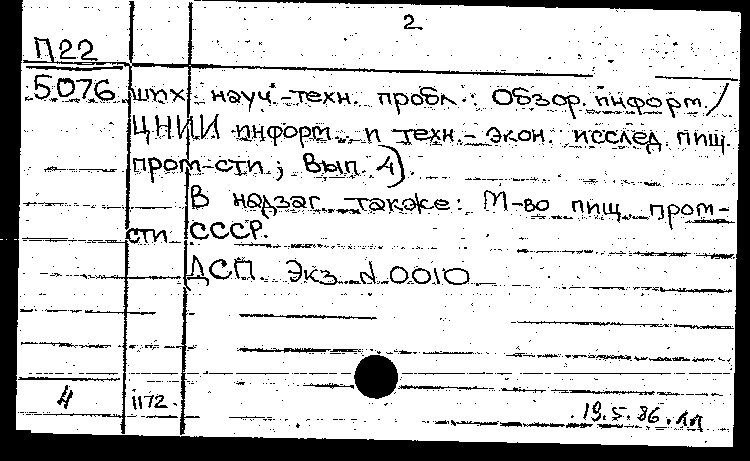 2
П22
5076 ших науч.-техн. пробл.: Обзор. информ./
ЦНИИ информ. и техн.-экон. исслед. пищ.
пром-сти; Вып. 4).
В надзаг. также: М-во пищ. пром-
сти СССР.
ДСП. Экз. N 0010
4 i172.
19.5.86.лл